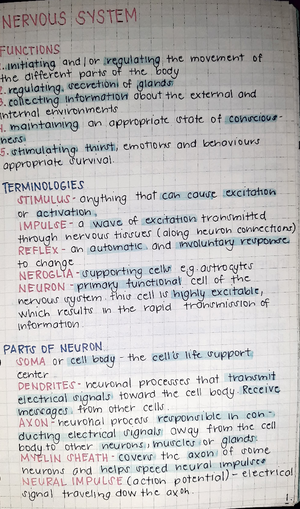 NERVOUS SYSTEM
FUNCTIONS
1. initiating and/or regulating the movement of
the different parts of the body
2. regulating secretion of glands
3. collecting information about the external and
internal environments
4. maintaining an appropriate state of conscious-
ness
5. stimulating thirst, emotions and behaviours
appropriate survival.
TERMINOLOGIES
STIMULUS - anything that can cause excitation
or activation.
IMPULSE - a wave of excitation transmitted
through nervous tissues (along neuron connections)
REFLEX - an automatic and involuntary response
to change
NEROGLIA - supporting cells e.g. astrocytes
NEURON - primary functional cell of the
nervous system. this cell is highly excitable,
which results in the rapid transmission of
information
PARTS OF NEURON
SOMA or cell body - the cell's life support
center
DENDRITES - neuronal processes that transmit
electrical signals toward the cell body. Receive
messages from other cells
AXON - neuronal process responsible in con-
ducting electrical signals away from the cell
body to other neurons, muscles or glands
MYELIN SHEATH - covers the axon of some
neurons and helps speed neural impulses
NEURAL IMPULSE (action potential) - electrical
signal traveling dow the axon.
1.